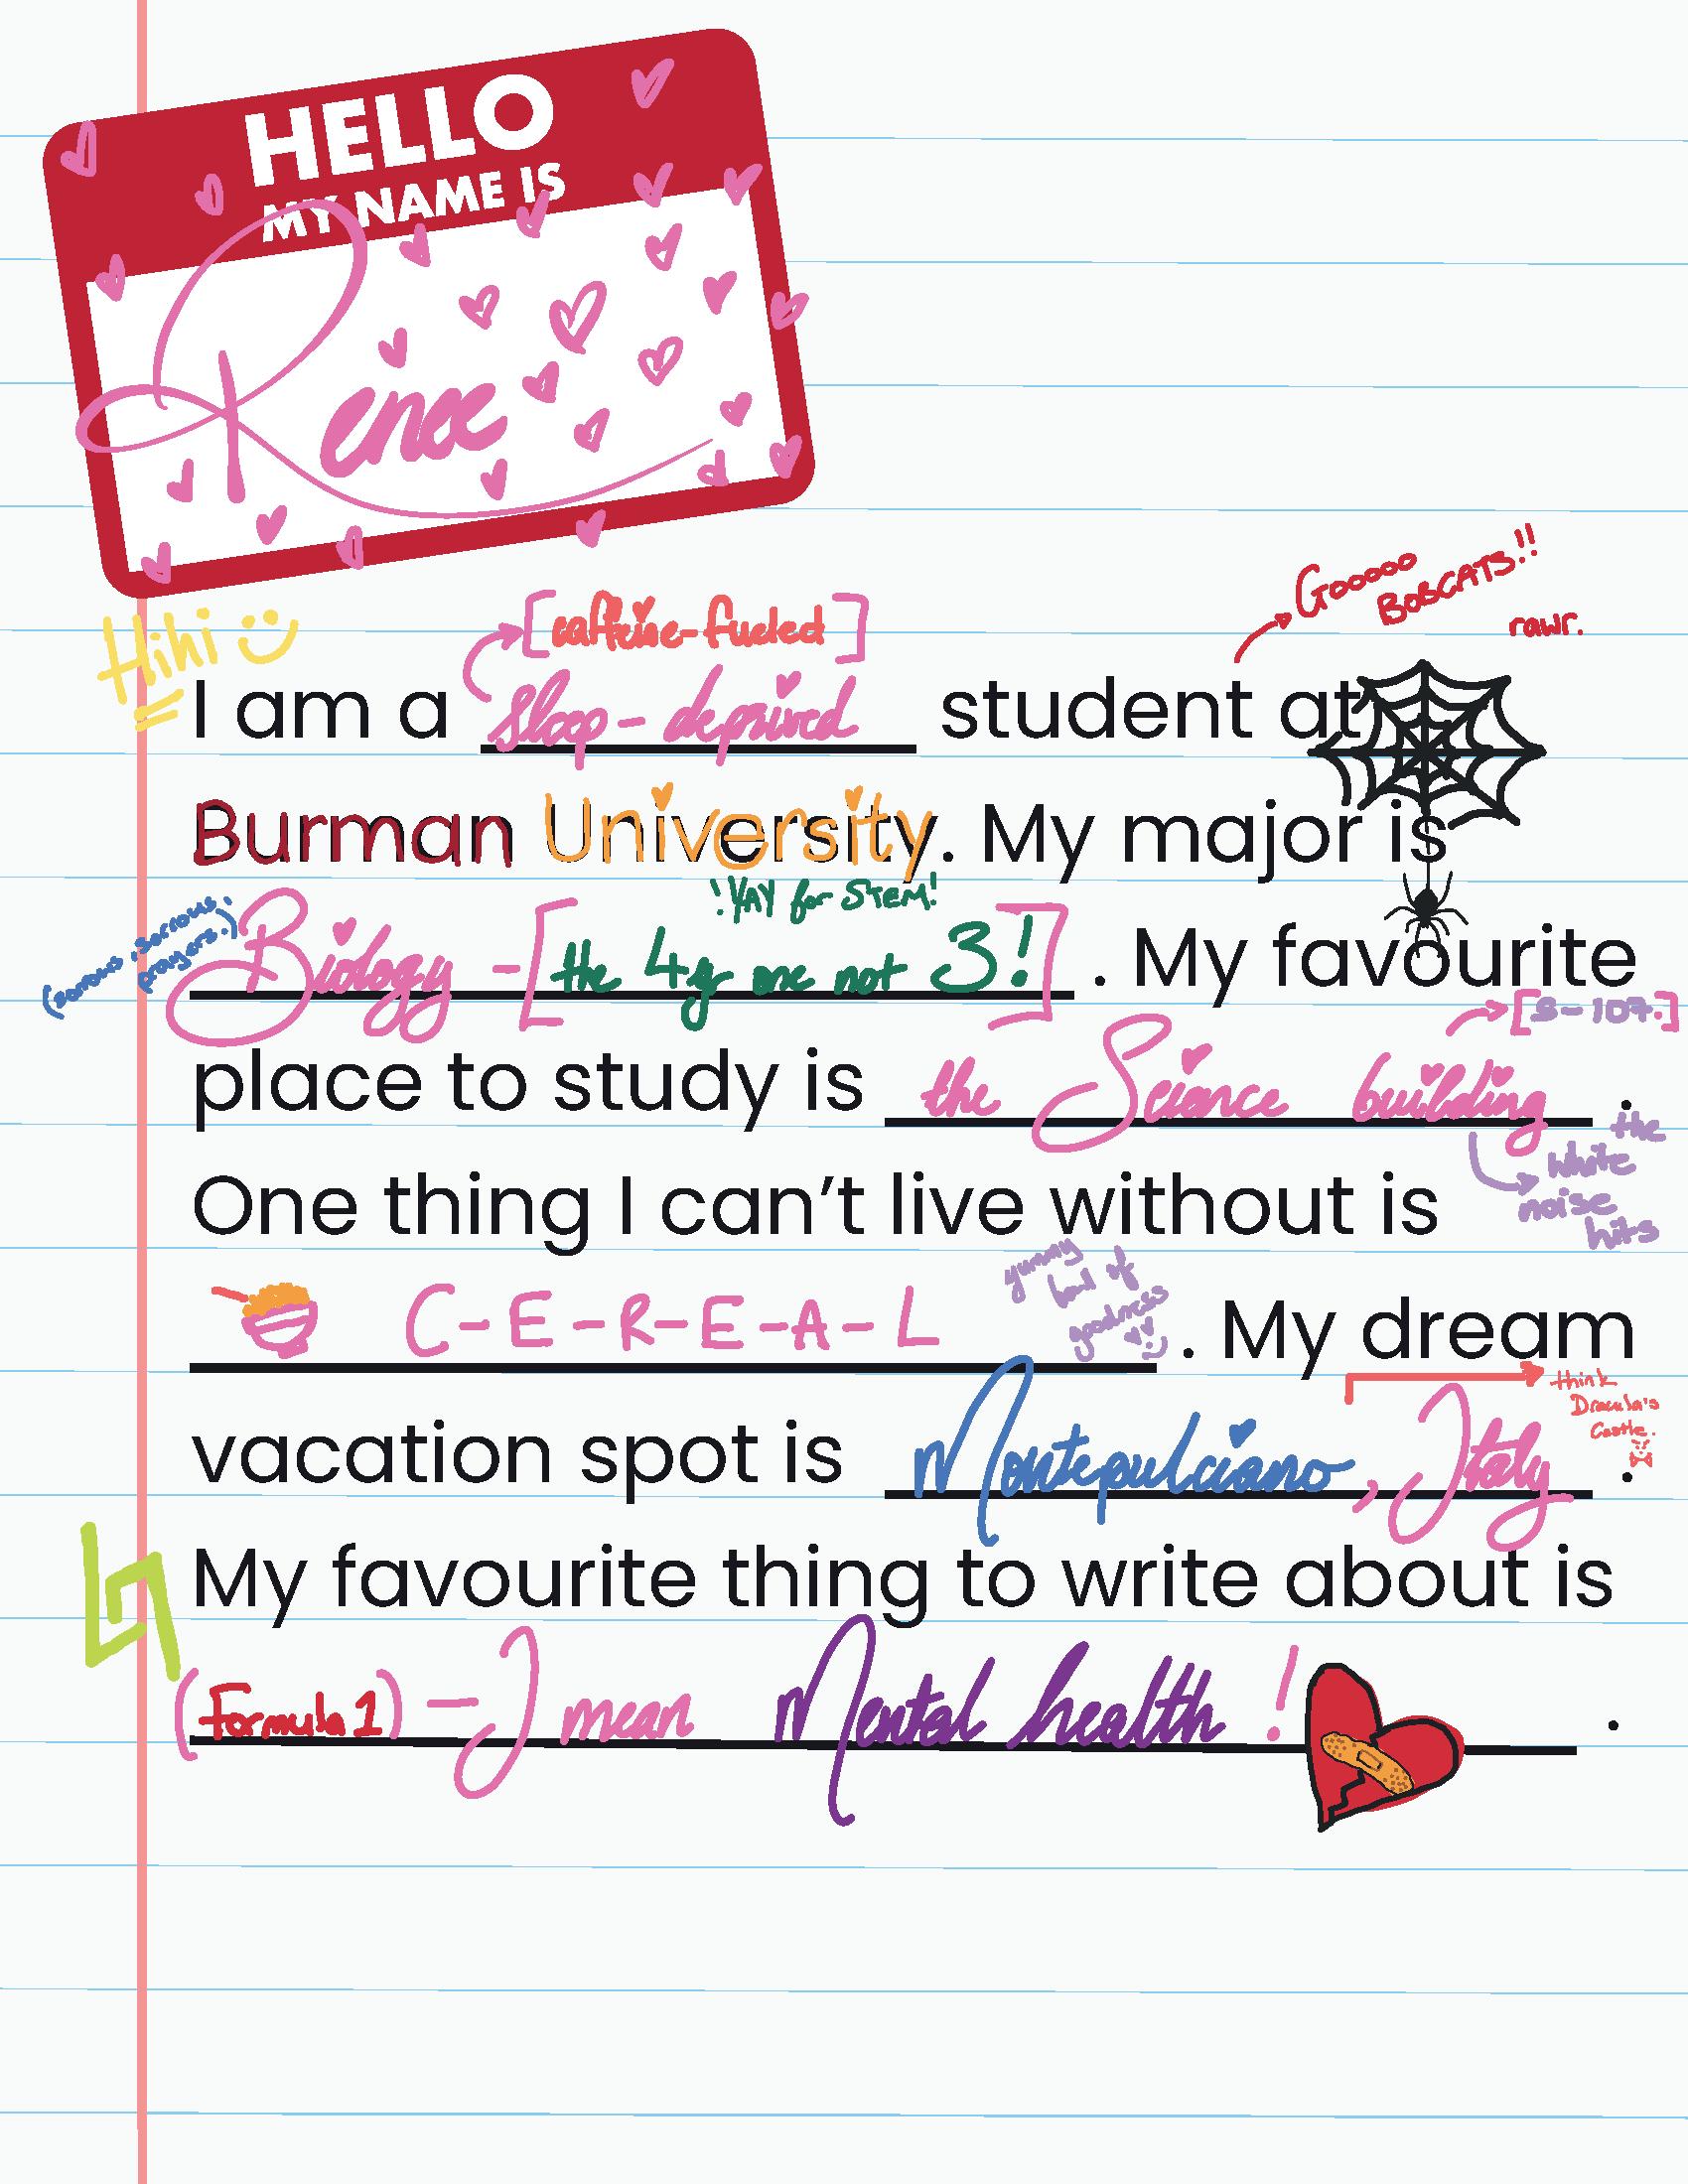 HELLO
MY NAME IS
Renee
Gooooo
BOBCATS!!
rawr.
Hihi
[caffeine-fueled]
I am a sleep-deprived student at
Burman University. My major is
!YAY for STEM!
serious
prayers.)
Biology -[the 4y one not 3!]. My favourite
[S-107.]
place to study is the Science building.
the
white
noise
hits
One thing I can't live without is
yummy
bowl of
goodness
C-E-R-E-A-L. My dream
think
Dracula's
Castle.
vacation spot is Montepulciano, Italy.
My favourite thing to write about is
(Formula 1) - I mean Mental health!.